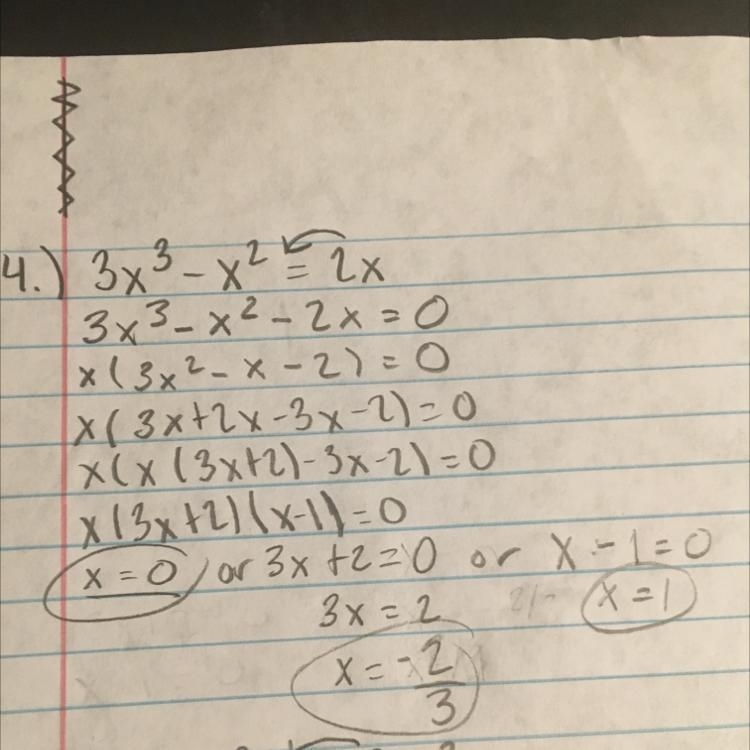 4.) 3x³ - x² = 2x
3x³ - x² - 2x = 0
x(3x² - x - 2) = 0
x(3x+2x-3x-2) = 0
x(x(3x+2)-3x-2) = 0
x(3x+2)(x-1) = 0
x = 0, or 3x+2=0 or x-1=0
3x = 2 x = 1
x = -2/3